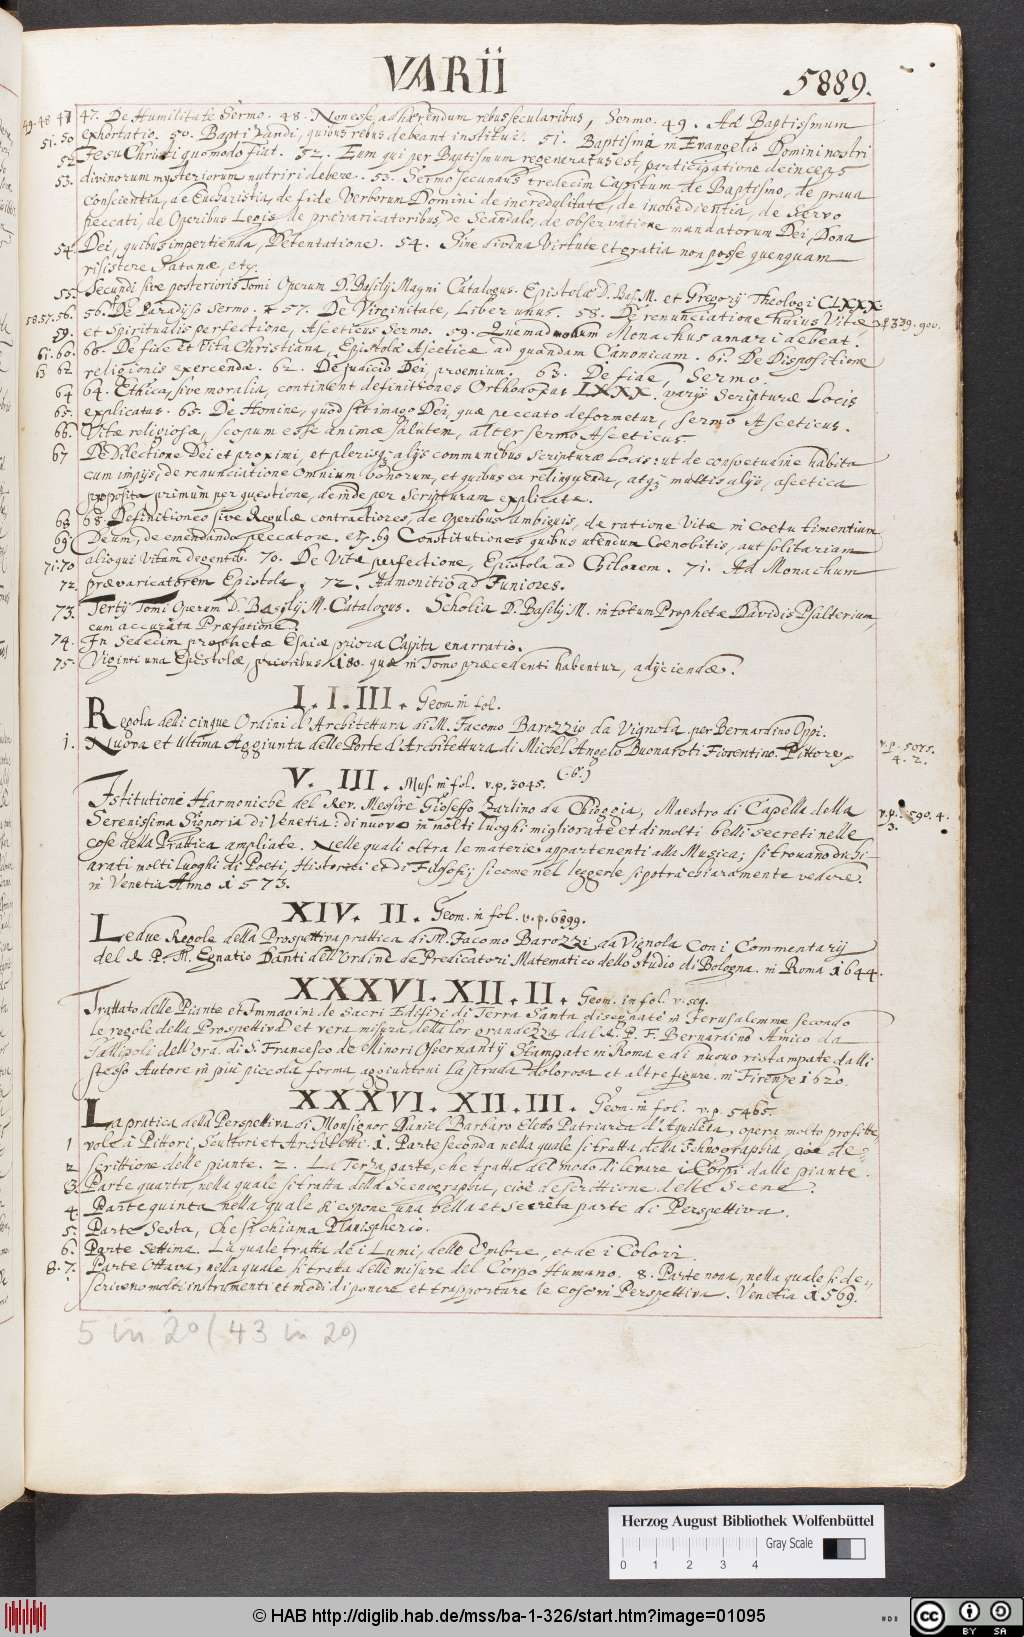 VARII
5889.
49. 48 47 47. De Humilitate Sermo. 48. Non esse adhærendum rebus secularibus, Sermo. 49. Ad Baptismum
51. 50 exhortatio. 50. Baptizandi, quibus rebus debeant institui. 51. Baptisma in Evangelio Domini nostri
52 Jesu Christi quomodo fiat. 52. Eum qui per Baptismum regeneratus est, participatione deinceps
53. divinorum mysteriorum nutriri debere. 53. Sermo secundus tredecim Capitum de Baptismo, de prava
conscientia, de Eucharistia, de fide Verborum Domini de incredulitate, de inobedientia, de Servo
peccati, de Operibus Legis de prævaricatoribus, de Scandalo, de observatione mandatorum Dei, Dona
54. Dei, quibus impertienda, De tentatione. 54. Sine divina Virtute et gratia non posse quenquam
resistere Satanæ, etc.
55. Secundi sive posterioris Tomi Operum D. Basilij Magni Catalogus. Epistolæ D. Bas. M. et Gregorij Theologi CLXXX.
58. 57. 56. 56. De Paradiso Sermo. 57. De Virginitate, Liber unus. 58. De renunciatione huius Vitæ
59. et Spiritualis perfectione, Asceticus Sermo. 59. Quemadmodum Monachus amari debeat.
61. 60. 60. De fide et vita Christiana, Epistola Ascetica ad quandam Canonicam. 61. De Dispositione
63 62 religionis exercendæ. 62. De judicio Dei, proemium. 63. De fide, Sermo.
64 64. Ethica, sive moralia, continent definitiones Orthodoxas LXXX. varijs Scripturæ Locis
65. explicatas. 65. De Homine, quod sit imago Dei, quæ peccato deformetur, Sermo Asceticus.
66. Vitæ religiosæ, scopum esse animæ salutem, alter sermo Asceticus.
67 De Dilectione Dei et proximi, et plerisq; alijs communibus Scripturæ Locis: ut de consvetudine habita
cum impijs, de renunciatione Omnium bonorum, et quibus ea relinquenda, atq; multis alijs, ascetica
proposita primum per questione, deinde per Scripturam explicate.
68 68. Definitiones sive Regulæ contractiores, de Operibus ambiguis, de ratione Vitæ in Coetu timentium
69 Deum, de emendando peccatore. etc. 69 Constitutiones quibus utendum Coenobitis, aut solitariam
71. 70 alioqui Vitam degentib. 70. De Vitæ perfectione, Epistola ad Chilonem. 71. Ad Monachum
72. prævaricatorem Epistola. 72. Admonitio ad Juniores.
73. Tertij Tomi Operum D. Basilij M. Catalogus. Scholia D. Basilij M. in totum Prophetæ Davidis Psalterium,
cum accurata Præfatione.
74. In Sedecim prophetæ Esaiæ priora Capita enarratio.
75. Viginti una Epistolæ, prioribus 180. quæ in Tomo præcedenti habentur, adijciendæ.
I. I. III. Geom in fol.
Regola delli cinque Ordini d'Architettura di M. Jacomo Barozzio da Vignola per Bernardino Oppi.
1. Nuova et Ultima Aggiunta delle Porte d'Architettura di Michel Angelo Buonaroti Fiorentino Pittore,
v. p. 5075.
4. 2.
V. III. Mus. in fol. v. p. 3045.
Istitutioni Harmoniche del Rev. Messire Gioseffo Zarlino da Chioggia, Maestro di Capella della
Serenissima Signoria di Venetia: di nuovo in molti luoghi migliorate et di molti belli secreti nelle
cose della Prattica ampliate. Nelle quali oltra le materie appartenenti alla Musica; si trovano dichi-
arati molti luoghi di Poeti, Historici et di Filosofi; si come nel leggerle si potra chiaramente vedere.
in Venetia Anno 1573.
XIV. II. Geom. in fol. v. p. 6899.
Le due Regole della Prospettiva prattica di M. Jacomo Barozzi da Vignola Con i Commentarij
del R. P. M. Egnatio Danti dell'Ordine de Predicatori Matematico dello studio di Bologna. in Roma 1644.
XXXVI. XII. II. Geom. in fol. v. seq.
Trattato delle Piante et Immagini de Sacri Edifizi di Terra Santa disegnate in Jerusalemme secondo
le regole della Prospettiva et vera misura della lor grandezza dal R. P. F. Bernardino Amico da
Gallipoli dell'Ord. di S. Francesco de Minori Osservantij Stampate in Roma e di nuovo ristampate dalli
stesso Autore in piu piccola forma, aggiuntoni la strada dolorosa et altre figure. in Firenze 1620.
XXXVI. XII. III. Geom. in fol. v. p. 5465.
La pratica della Perspettiva di Monsignor Daniel Barbaro Eletto Patriarca d'Aquileia, opera molto profitte,
1 vole à Pittori, Scultori et Architetti. 1. Parte seconda nella quale si tratta della Ichnographia, cioè de-
2 scrittione delle piante. 2. La Terza parte, che tratta del modo di levare i Corpi dalle piante.
3. Parte quarta, nella quale si tratta della Scenographia, cioè descrittione delle Scene.
4. Parte quinta nella quale si espone una bella et secreta parte di Perspettiva.
5. Parte Sesta, che si chiama Planispherio.
6. Parte Settima. La quale tratta de i Lumi, delle Ombre, et de i Colori.
8. 7. Parte Ottava, nella quale si tratta delle misure del Corpo Humano. 8. Parte nona, nella quale si de-
scriveno molti instrumenti et modi di ponere et trapportare le cose in Perspettiva. Venetia 1569.
5 in 2° (43 in 2°)
Herzog August Bibliothek Wolfenbüttel
Gray Scale
0 1 2 3 4
© HAB http://diglib.hab.de/mss/ba-1-326/start.htm?image=01095
cc BY SA